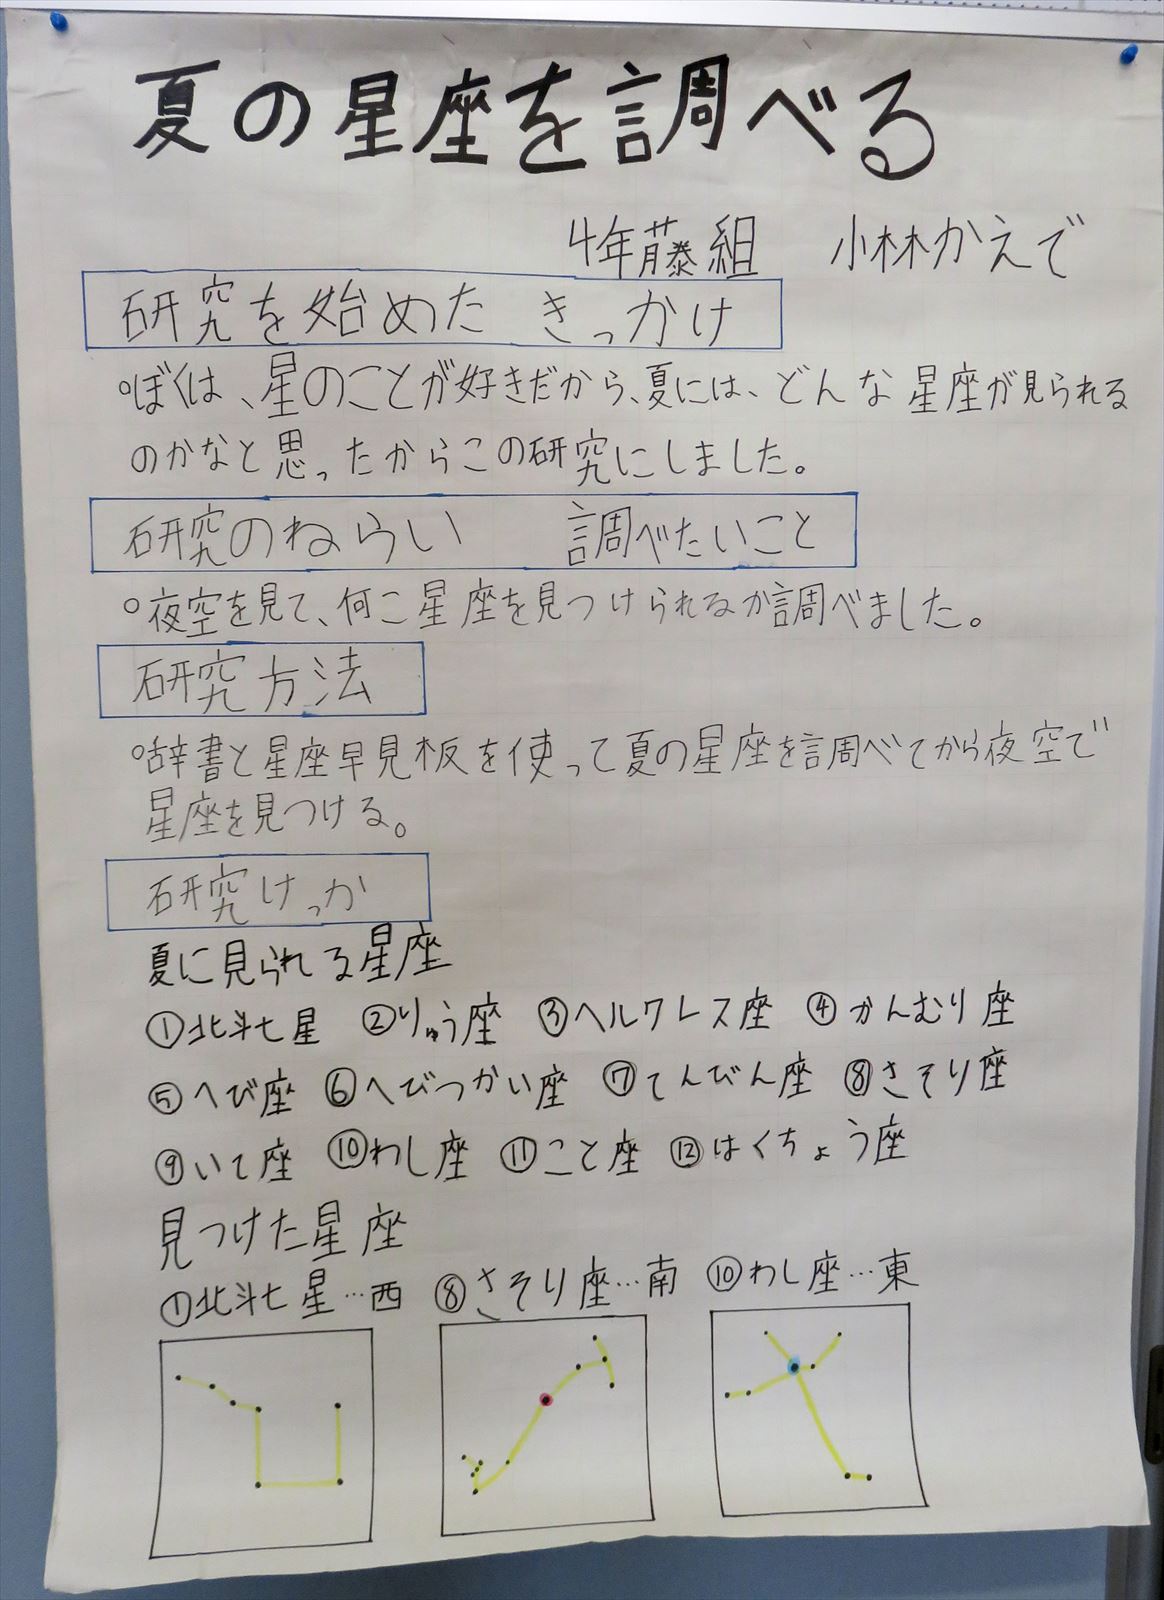 夏の星座を調べる
4年藤組 小林かえで
研究を始めた きっかけ
○ぼくは、星のことが好きだから、夏には、どんな星座が見られる
のかなと思ったからこの研究にしました。
研究のねらい 調べたいこと
○夜空を見て、何こ星座を見つけられるか調べました。
研究方法
○辞書と星座早見板を使って夏の星座を調べてから夜空で
星座を見つける。
研究けっか
夏に見られる星座
①北斗七星 ②りゅう座 ③ヘルクレス座 ④かんむり座
⑤へび座 ⑥へびつかい座 ⑦てんびん座 ⑧さそり座
⑨いて座 ⑩わし座 ⑪こと座 ⑫はくちょう座
見つけた星座
①北斗七星…西 ⑧さそり座…南 ⑩わし座…東